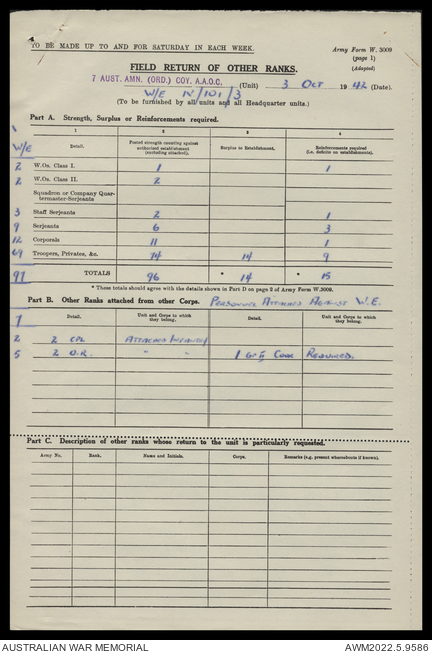 TO BE MADE UP TO AND FOR SATURDAY IN EACH WEEK.
Army Form W. 3009
(page 1)
(Adapted)
FIELD RETURN OF OTHER RANKS.
7 AUST. AMN. (ORD.) COY. A.A.O.C. (Unit) 3 OCT 1942 (Date).
W/E IV/101/3
(To be furnished by all units and all Headquarter units.)
Part A. Strength, Surplus or Reinforcements required.
1 2 3 4
W/E Detail. Posted strength counting against authorized establishment (excluding attached). Surplus to Establishment. Reinforcements required (i.e. deficits on establishments).
2 W.Os. Class I. 1 1
2 W.Os. Class II. 2
Squadron or Company Quartermaster-Serjeants
3 Staff Serjeants 2 1
9 Serjeants 6 3
12 Corporals 11 1
69 Troopers, Privates, &c. 74 14 9
97 TOTALS 96 * 14 * 15
* These totals should agree with the details shown in Part D on page 2 of Army Form W.3009.
Part B. Other Ranks attached from other Corps. PERSONNEL ATTACHED AGAINST W.E.
7 Detail. Unit and Corps to which they belong. Detail. Unit and Corps to which they belong.
2 2 CPL ATTACHED INFANTRY
5 2 O.R. " " 1 GP II COOK REQUIRED.
Part C. Description of other ranks whose return to the unit is particularly requested.
Army No. Rank. Name and Initials. Corps. Remarks (e.g. present whereabouts if known).
AUSTRALIAN WAR MEMORIAL AWM2022.5.9586